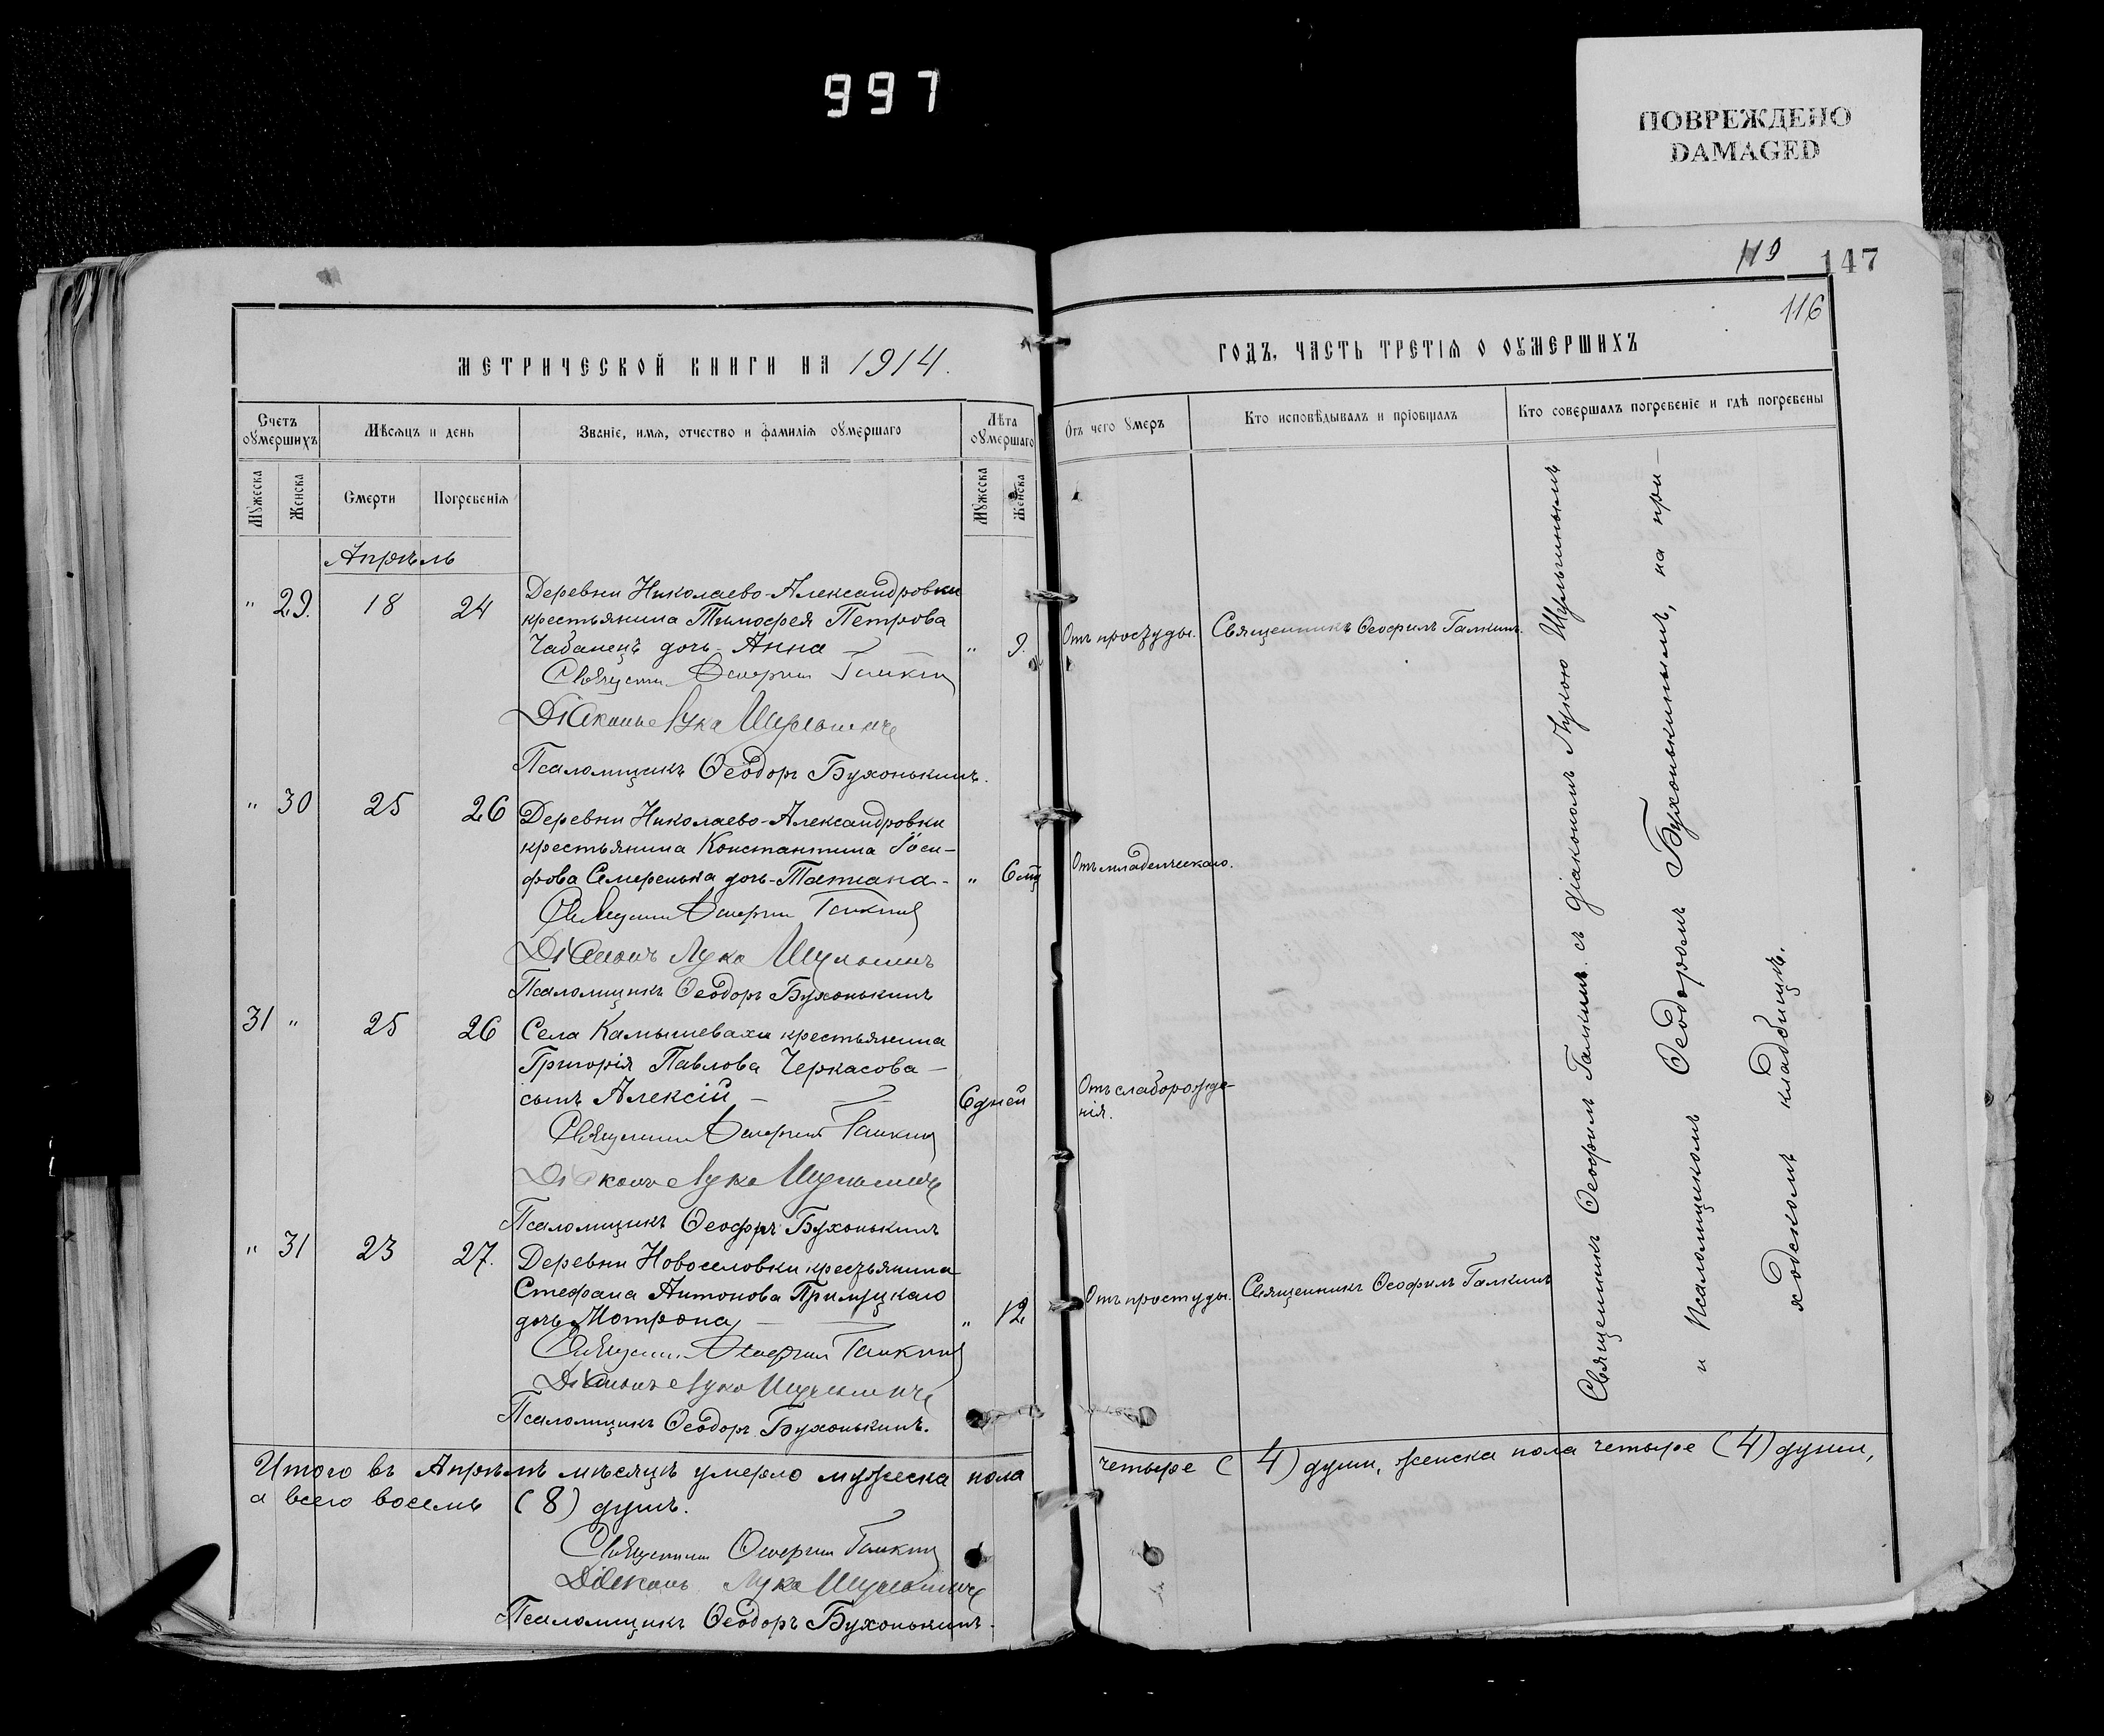 997
ПОВРЕЖДЕНО
DAMAGED
119
147
116
МЕТРИЧЕСКОЙ КНИГИ НА 1914.
ГОДЪ, ЧАСТЬ ТРЕТІЯ О ОУМЕРШИХЪ
Счетъ оумершихъ
Мѣсяцъ и день
Званіе, имя, отчество и фамилія оумершаго
Лѣта оумершаго
Отъ чего умеръ
Кто исповѣдывалъ и пріобщалъ
Кто совершалъ погребеніе и гдѣ погребены
Мужеска
Женска
Смерти
Погребенія
Мужеска
Женска
Апрѣль
" 29. 18 24 Деревни Николаево-Александровки
крестьянина Тимофея Петрова
Чабанецъ дочь - Анна — " 9. Отъ простуды. Священникъ Ѳеофилъ Галкинъ.
Священникъ Ѳеофилъ Галкинъ
Діаконъ Лука Шульгинъ
Псаломщикъ Ѳеодоръ Бухонькинъ.
" 30 25 26 Деревни Николаево-Александровки
крестьянина Константина Іоси-
фова Семеренька дочь - Татiана - " 6 мц Отъ младенческаго.
Священникъ Ѳеофилъ Галкинъ
Діаконъ Лука Шульгинъ
Псаломщикъ Ѳеодоръ Бухонькинъ
31 " 25 26 Села Камышевахи крестьянина
Григорія Павлова Черкасова —
сынъ Алексій — 6 дней Отъ слаборожде-
нія.
Священникъ Ѳеофилъ Галкинъ
Діаконъ Лука Шульгинъ
Псаломщикъ Ѳеодоръ Бухонькинъ
" 31 23 27. Деревни Новоселовки крестьянина
Стефана Антонова
дочь Мотрона — " 12 Отъ простуды. Священникъ Ѳеофилъ Галкинъ
Священникъ Ѳеофилъ Галкинъ
Діаконъ Лука Шульгинъ
Псаломщикъ Ѳеодоръ Бухонькинъ.
Священникъ Ѳеофилъ Галкинъ съ діакономъ Лукою Шульгинымъ
и Псаломщикомъ Ѳеодоромъ Бухонькинымъ, на при-
ходскомъ кладбищѣ.
Итого въ Апрѣлѣ мѣсяцѣ умерло мужеска пола четыре (4) души, женска пола четыре (4) души,
а всего восемь (8) душъ.
Священникъ Ѳеофилъ Галкинъ
Діаконъ Лука Шульгинъ
Псаломщикъ Ѳеодоръ Бухонькинъ.